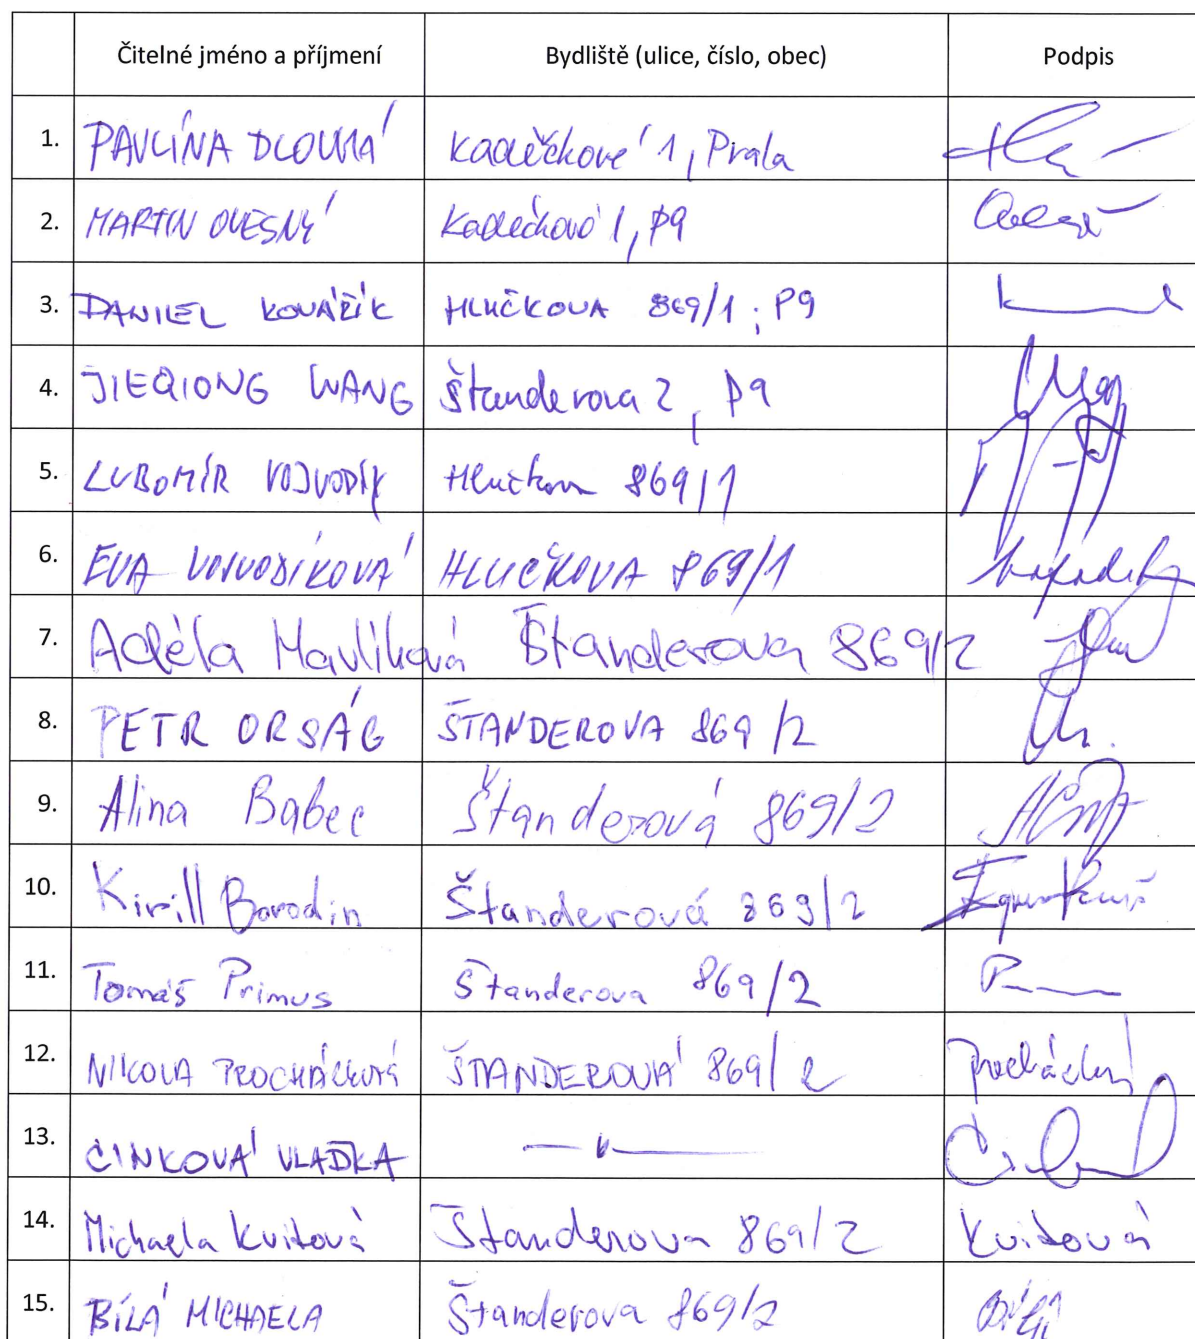 Čitelné jméno a příjmení Bydliště (ulice, číslo, obec) Podpis
1. PAVLÍNA DLOUHÁ 1, Praha
2. MARTIN OVESNÝ 1, P9
3. DANIEL KOVÁŘÍK HLUČKOVA 869/1; P9
4. JIEQIONG WANG Štanderova 2, P9
5. LUBOMÍR VOJVODÍK Hlučkova 869/1
6. EVA VOJVODÍKOVÁ HLUČKOVA 869/1
7. Adéla Havlíková Štanderova 869/2
8. PETR ORSÁG ŠTANDEROVA 869/2
9. Alina Babec Štanderová 869/2
10. Kirill Borodin Štanderová 869/2
11. Tomáš Primus Štanderova 869/2
12. NIKOLA PROCHÁZKOVÁ ŠTANDEROVÁ 869/2
13. CINKOVÁ VLADKA — " —
14. Michaela Kvitová Štanderova 869/2 Kvitová
15. BÍLÁ MICHAELA Štanderova 869/2